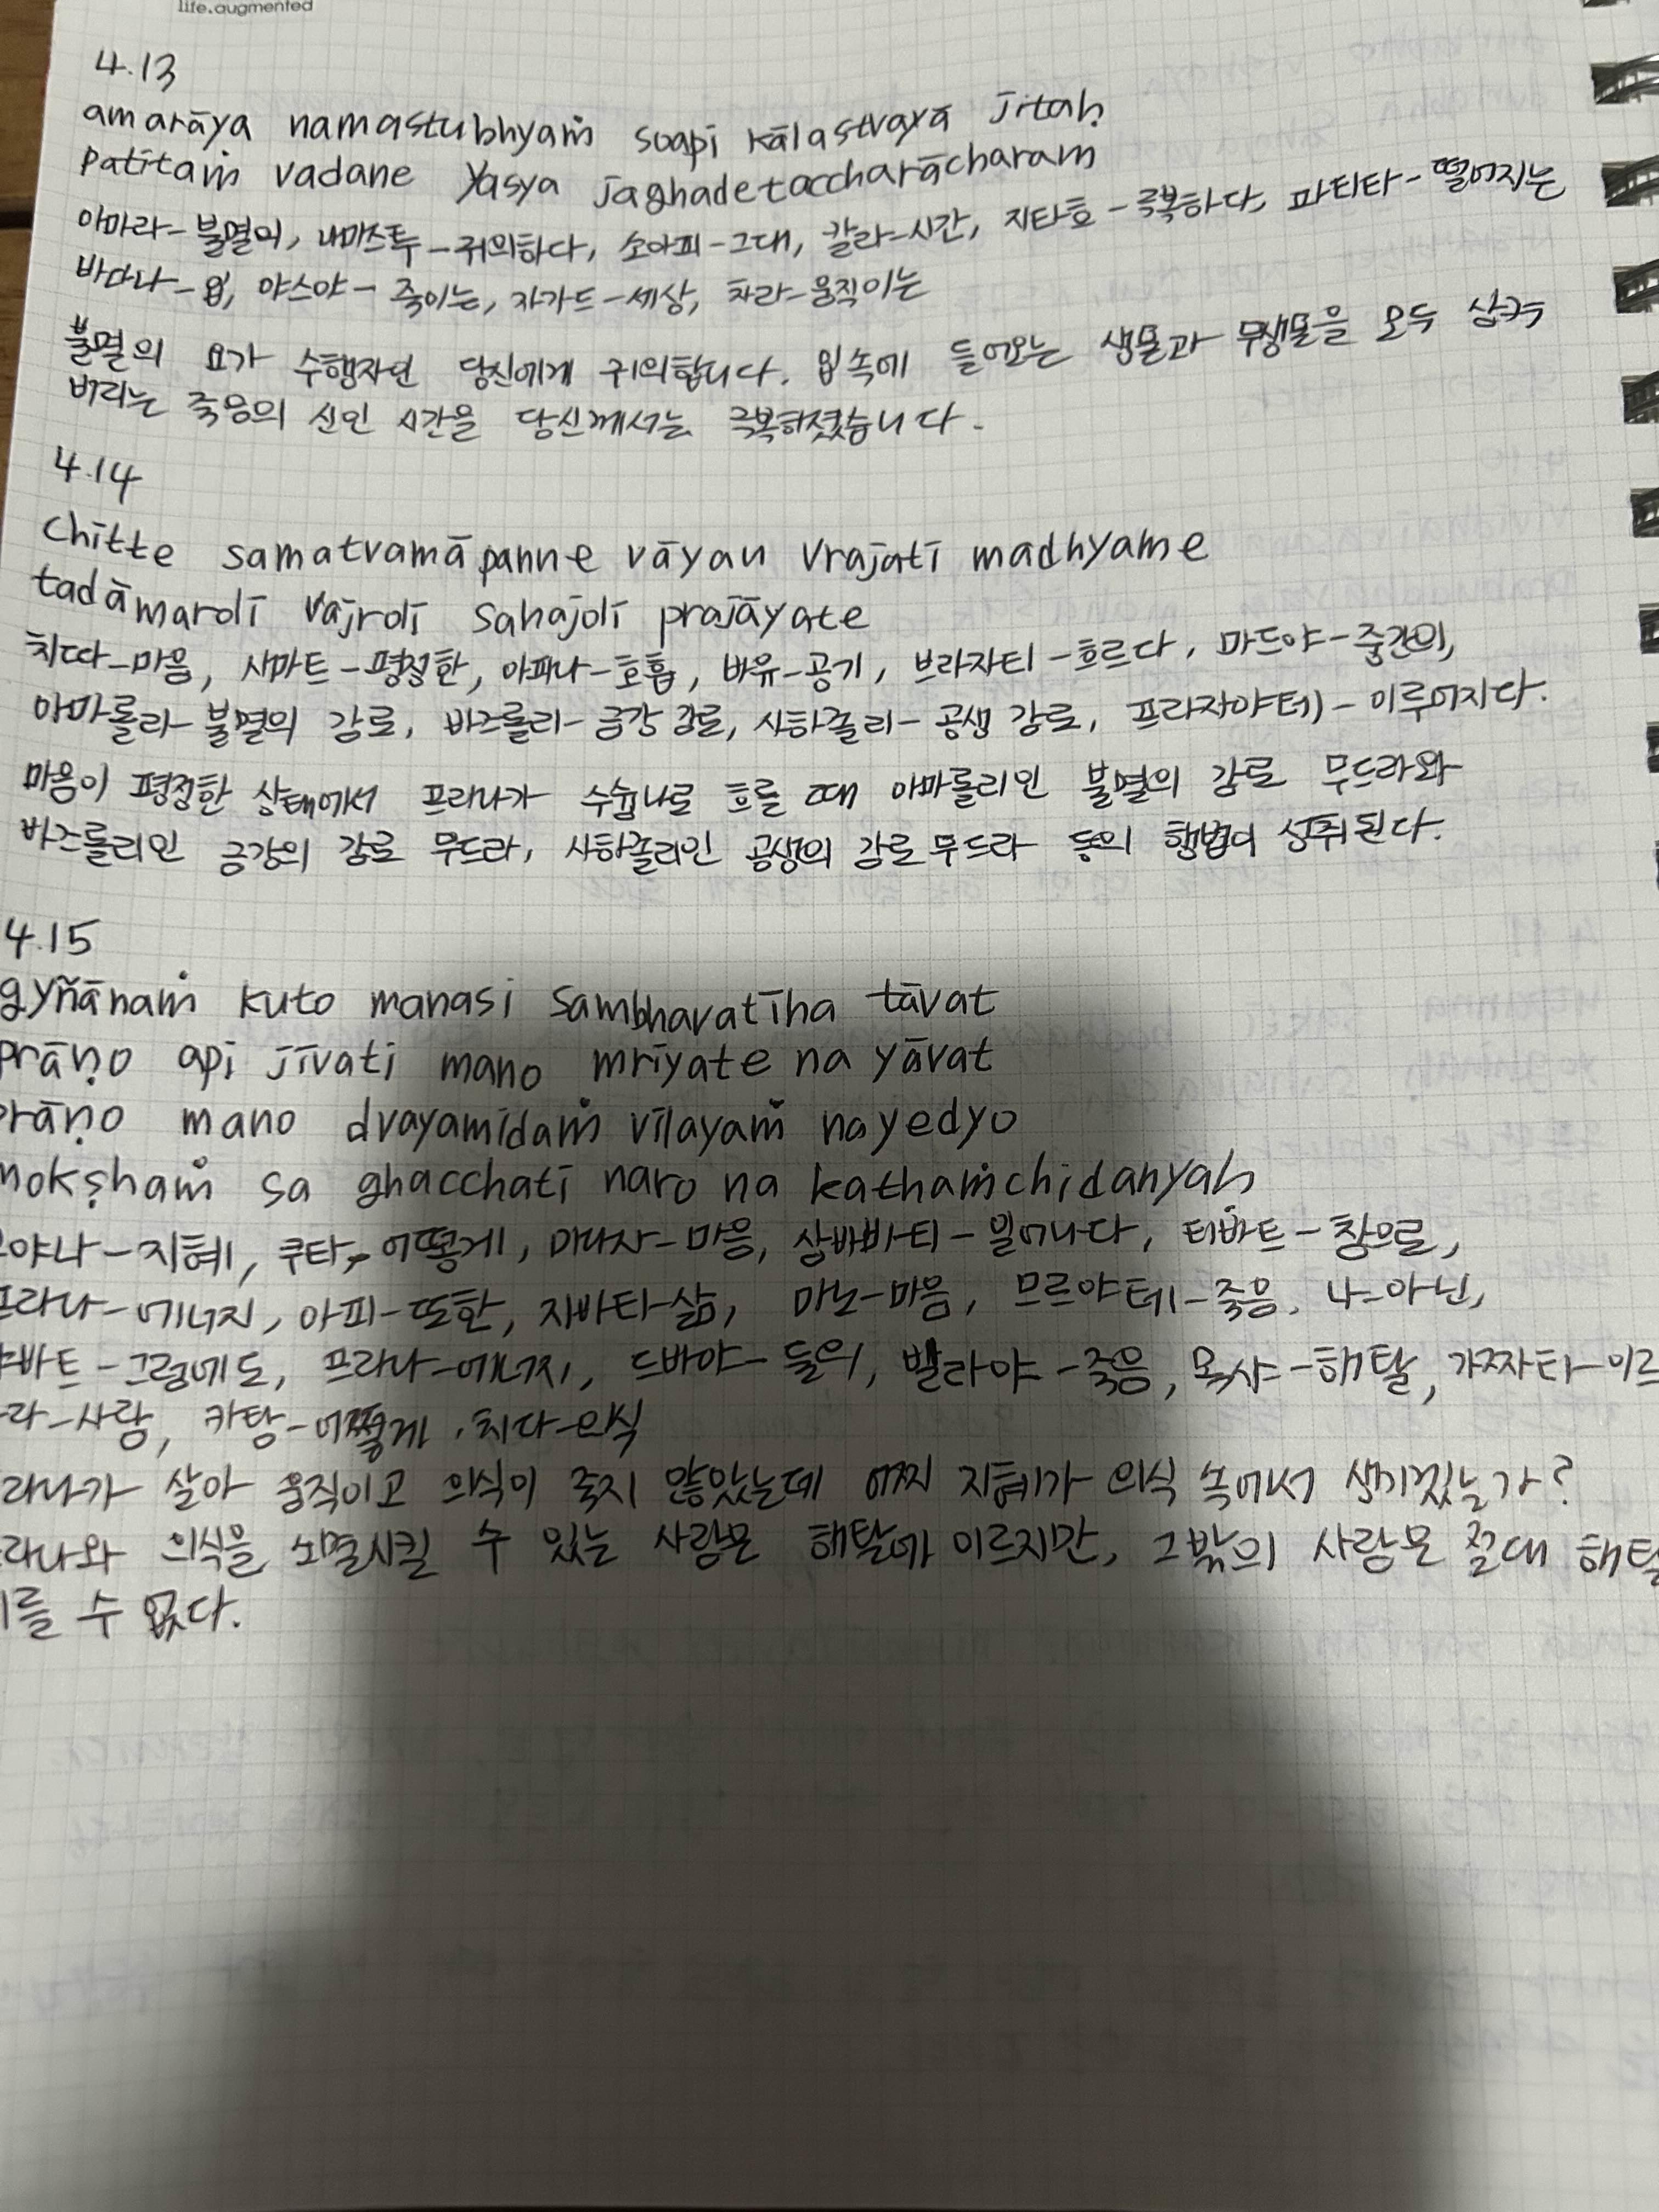 life.augmented
4.13
amarāya namastubhyaṁ soapi kālastvayā jitaḥ
patitaṁ vadane yasya jaghadetaccharācharam
아마라-불멸의, 나마스투-귀의하다, 소아피-그대, 칼라-시간, 지타호-극복하다, 파티타-떨어지는
바다나-입, 야스야-죽이는, 자가드-세상, 차라-움직이는
불멸의 요가 수행자인 당신에게 귀의합니다. 입속에 들어오는 생물과 무생물을 모두 삼켜
버리는 죽음의 신인 시간을 당신께서는 극복하셨습니다.
4.14
chitte samatvamāpanne vāyau vrajati madhyame
tadāmarolī vajrolī sahajolī prajāyate
치따-마음, 사마트-평정한, 아파나-호흡, 바유-공기, 브라자티-흐르다, 마드야-중간의,
아마롤리-불멸의 감로, 바즈롤리-금강 감로, 사하졸리-공생 감로, 프라자야테-이루어지다.
마음이 평정한 상태에서 프라나가 수슘나로 흐를 때 아마롤리인 불멸의 감로 무드라와
바즈롤리인 금강의 감로 무드라, 사하졸리인 공생의 감로 무드라 등의 행법이 성취된다.
4.15
gyñānaṁ kuto manasi sambhavatīha tāvat
prāṇo api jīvati mano mriyate na yāvat
prāṇo mano dvayamidaṁ vilayaṁ nayedyo
mokṣhaṁ sa ghacchati naro na kathaṁchidanyaḥ
야나-지혜, 쿠타-어떻게, 마나사-마음, 삼바바티-일어나다, 티바트-참으로,
프라나-에너지, 아피-또한, 지바티-삶, 마노-마음, 므르야테-죽음, 나-아닌,
야바트-그럼에도, 프라나-에너지, 드바야-둘의, 빌라야-죽음, 목샤-해탈, 가짜타-이르
라-사람, 카탕-어떻게, 치다-의식
라나가 살아 움직이고 의식이 죽지 않았는데 어찌 지혜가 의식 속에서 생기겠는가?
라나와 의식을 소멸시킬 수 있는 사람은 해탈에 이르지만, 그밖의 사람은 절대 해탈
를 수 없다.